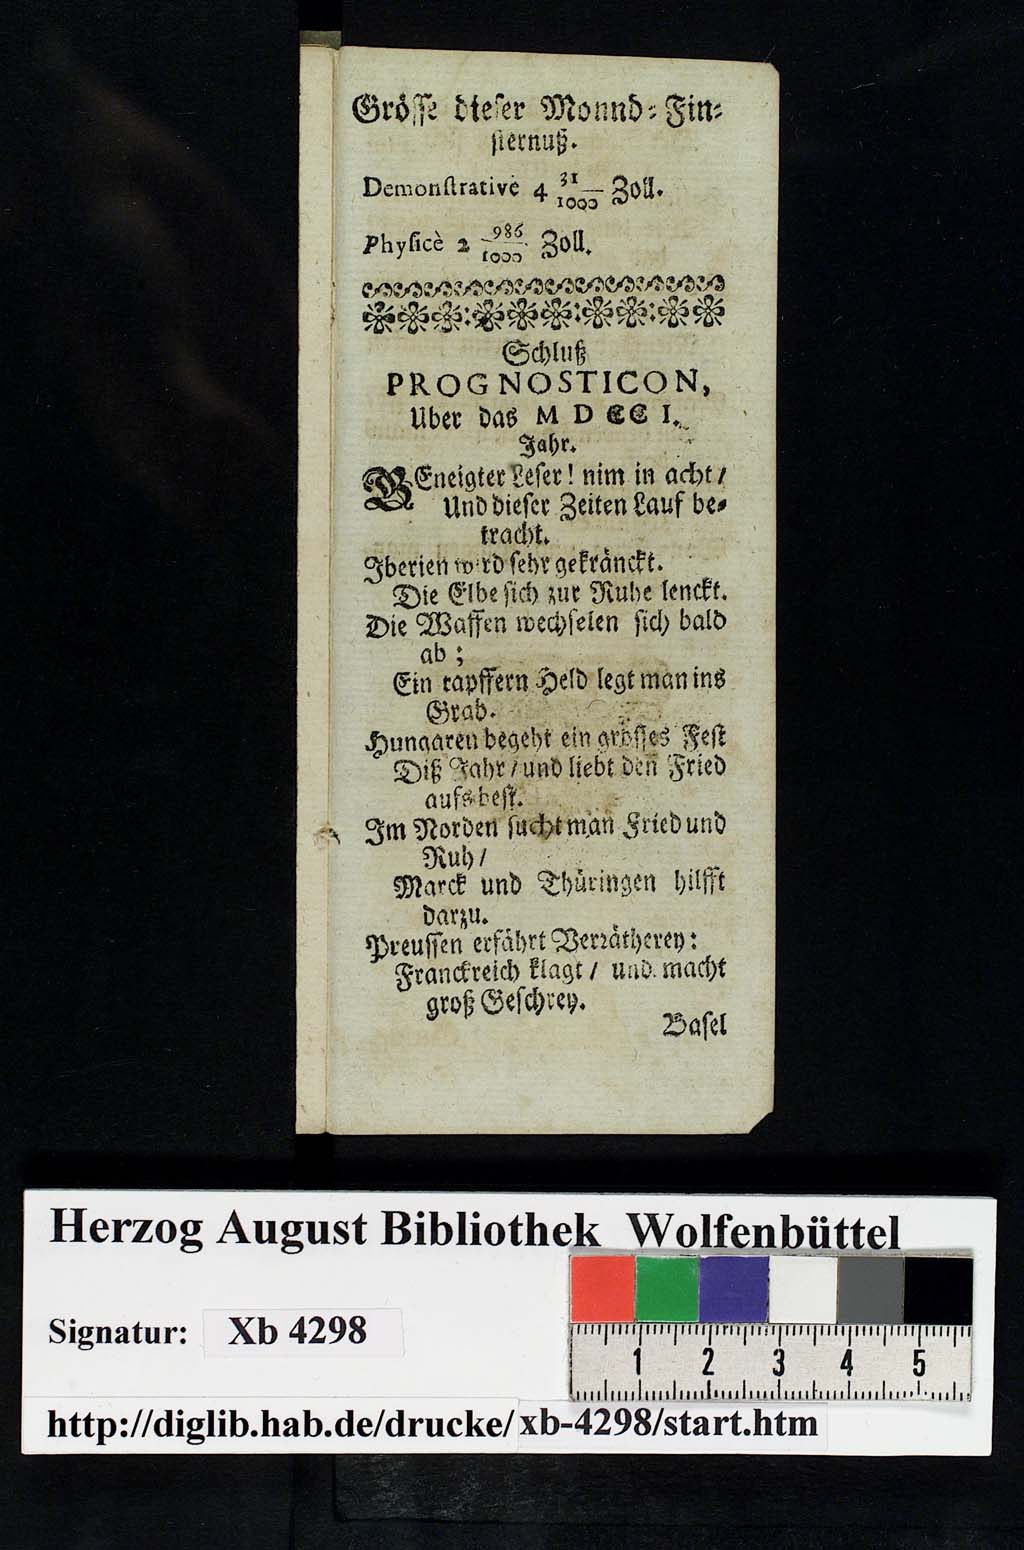 Grösse dieser Monnd-Fin-
sternuß.
Demonstrativè 4 31/1000 Zoll.
Physicè 2 986/1000 Zoll.
Schluß
PROGNOSTICON,
Uber das MDCCI.
Jahr.
GEneigter Leser! nim in acht/
Und dieser Zeiten Lauf be-
tracht.
Iberien wird sehr gekränckt.
Die Elbe sich zur Ruhe lenckt.
Die Waffen wechselen sich bald
ab;
Ein tapffern Held legt man ins
Grab.
Hungaren begeht ein grosses Fest
Diß Jahr/ und liebt den Fried
aufs best.
Im Norden sucht man Fried und
Ruh/
Marck und Thüringen hilfft
darzu.
Preussen erfährt Verrätherey:
Franckreich klagt/ und macht
groß Geschrey.
Basel
Herzog August Bibliothek Wolfenbüttel
Signatur: Xb 4298
1 2 3 4 5
http://diglib.hab.de/drucke/xb-4298/start.htm